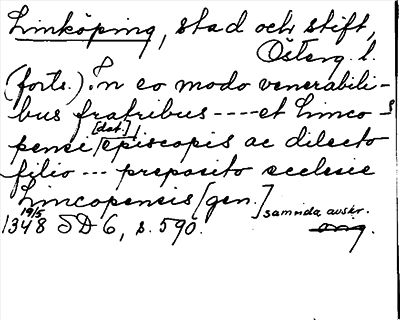 Linköping, stad och stift,
Österg. l.
(forts.) In eo modo venerabili-
bus fratribus ---- et Linco-
pensi [dat.] episcopis ac dilecto
filio --- preposito ecclesie
Lincopensis [gen.]
19/5 1348 SD 6, s. 590. samtida avskr.
orig.